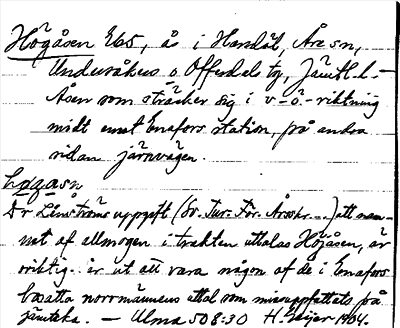 Högåsen E65, ås i Handöl, Åre sn,
Undersåkers o Offerdals tg, Jämtl. l. –
Åsen som sträcker sig i v–ö-riktning
midt emot Enafors station, på andra
sidan järnvägen.
høgasn
Dr Lénströms uppgift (Sv. Tur. För. Årsskr. ...) att nam-
net af allmogen i trakten uttalas Höjåsen, är
oriktig är ut att vara någon af de i Enafors
bosatta norrmännens uttal som missuppfattats på
jämtska. – Ulma 508:30 H. Geijer 1904.